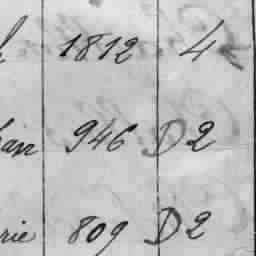 1812 4
946 D 2
rie 809 D 2